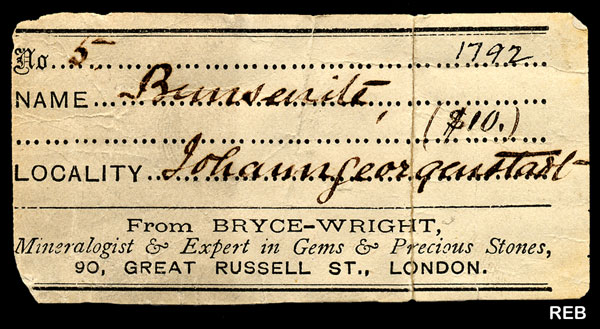 No. 5 1792
NAME Bunsenite,
($10.)
LOCALITY Johanngeorgenstadt
From BRYCE-WRIGHT,
Mineralogist & Expert in Gems & Precious Stones,
90, GREAT RUSSELL ST., LONDON.
REB